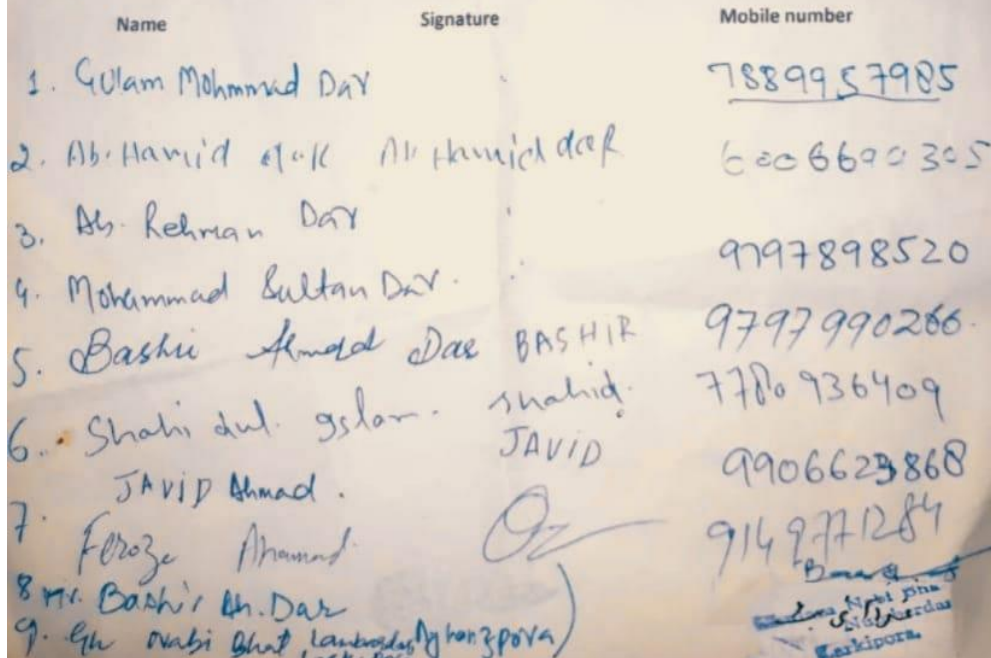 Name Signature Mobile number
1. Gulam Mohmmad Dar 7889957985
2. Ab. Hamid Ab Hamid dar
3. Ab. Rehman Dar
4. Mohammad Sultan Dar. 9797898520
5. Bashir Ahmad Dar BASHIR 9797990266
6. Shahidul Islam. Shahid. 7780936409
JAVID Ahmad. JAVID 9906623868
7. Feroze Ahamad 9149771284
8 Mr. Bashir Ah. Dar
9. Gh Nabi Bhat
Larkipora.